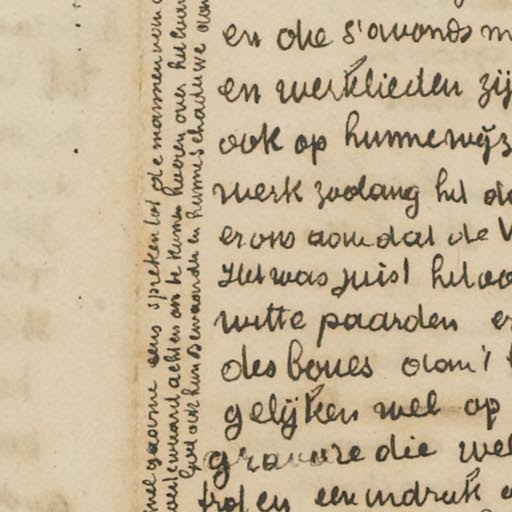 en die s'avonds
en werklieden zij
ook op hunne wijz
werk zoolang het
er ons aan dat de
Het was juist het
witte paarden
des boues aan 't
gelijken wel op
gravure die
trof en een indruk
gaarne eens spreken tot de mannen van
achter om te kunnen hooren over het
God ook hun bewaarder en hunne schaduwe